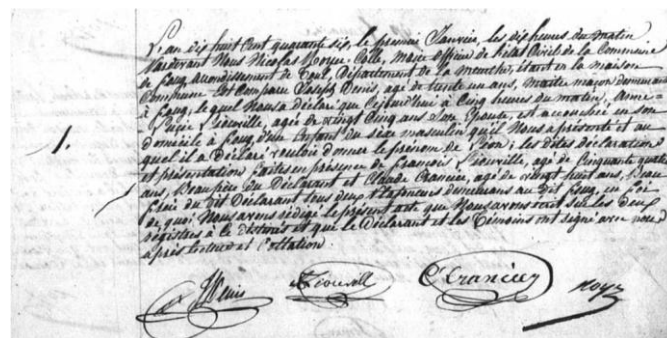 L'an dix huit Cent quarante six, le premier Janvier, les dix heures du matin
Pardevant Nous Nicolas Noyer Colle, Maire Officier de l'état Civil de la Commune
de foug, arrondissement de Toul, Département de la Meurthe, étant en la maison
Commune Est Comparu Joseph Denis, agé de trente un ans, maitre maçon demeurant
à foug, lequel Nous a déclaré que Cejourd'hui à Cinq heures du matin, Anne
agée de vingt Cinq ans Son Epouse, est accouchée en Son
domicile à foug, d'un Enfant du Sexe masculin qu'il Nous a présenté et au
quel il a Déclaré vouloir donner le prénom de Léon; les dites déclaration
et présentation faites en présence de françois Liouville, agé de Cinquante quatre
ans, Beau père du Déclarant et Claude agé de vingt huit ans, Beau
frère du dit Déclarant tous deux demeurans au dit foug, en foi
de quoi Nous avons rédigé le présent acte que Nous avons écrit sur les deux
registres à le et que le Déclarant et les Témoins ont signé avec nous
après lecture et Collation
1.
J Denis
Liouvill